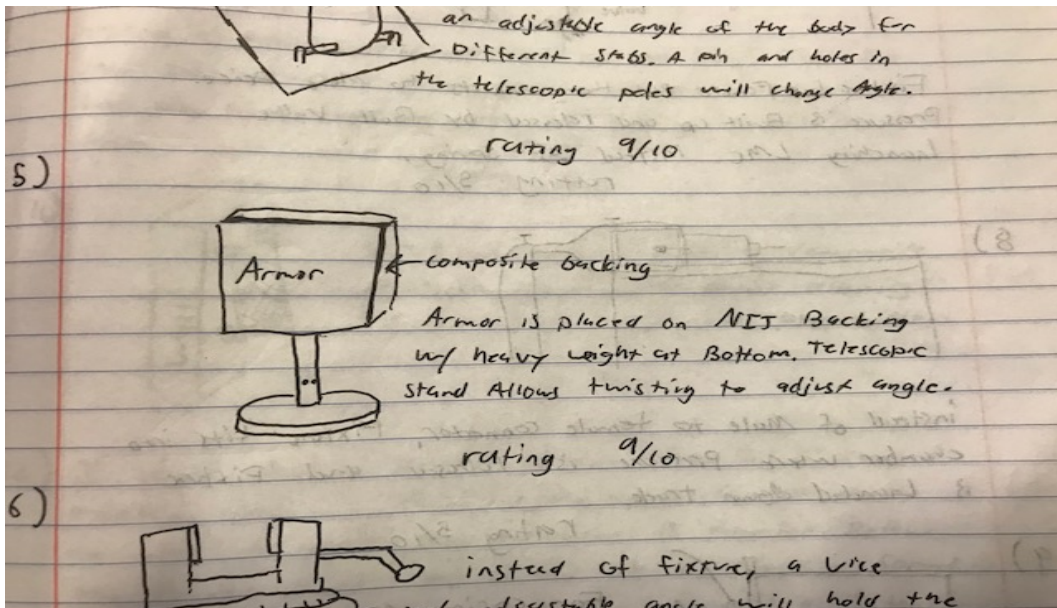 an adjustable angle of the body for
Different stabs. A pin and holes in
the telescopic poles will change Angle.
rating 9/10
5)
Armor
composite backing
Armor is placed on NIJ Backing
w/ heavy weight at Bottom. Telescopic
stand Allows twisting to adjust angle.
rating 9/10
6)
instead of fixture, a vice
adjustable angle will hold the